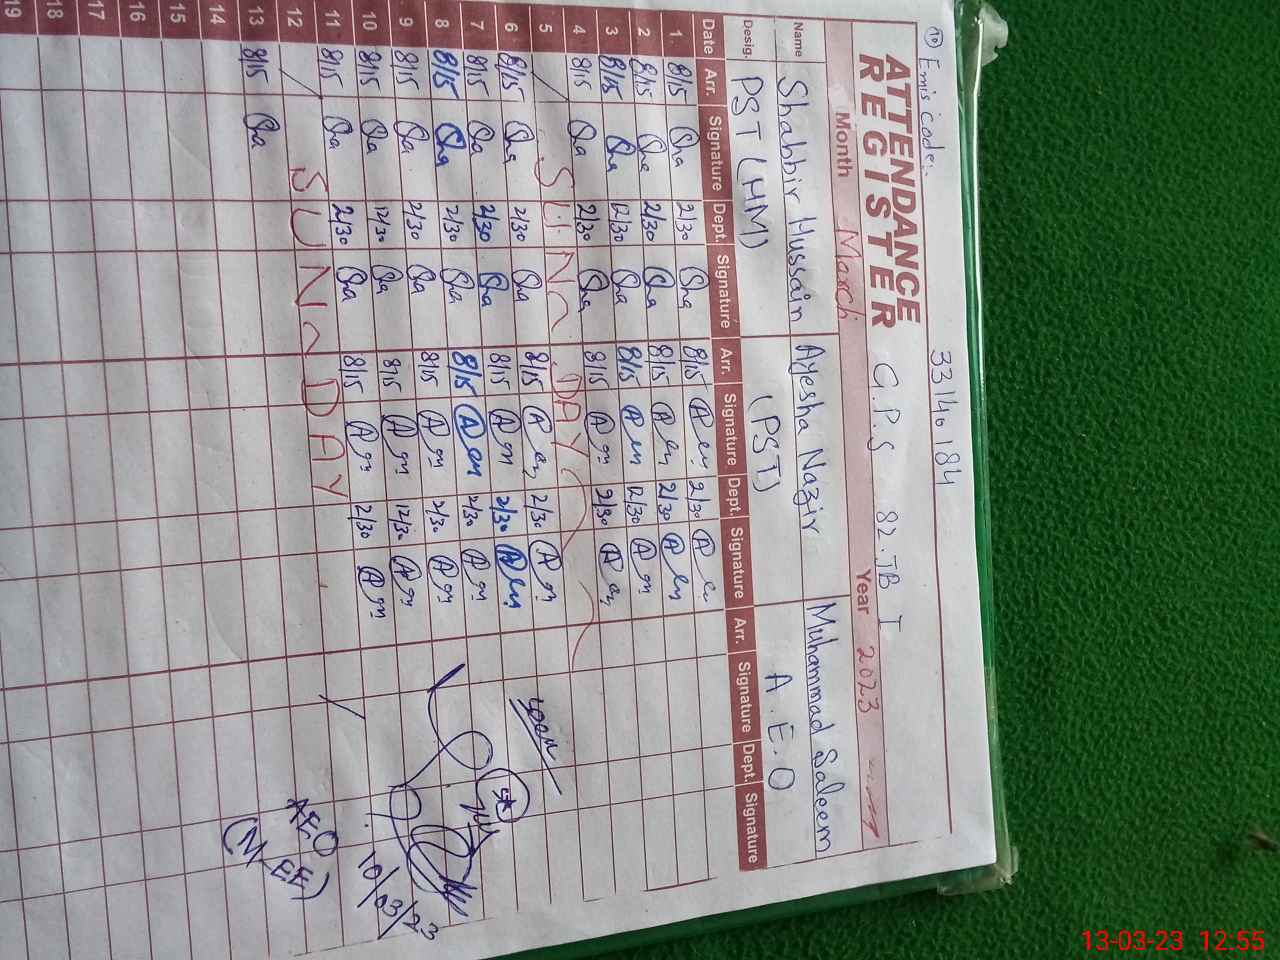 10 Emis code:- 33140184
ATTENDANCE
REGISTER G.P.S 82.JB I
Month March Year 2023
Name Shabbir Hussain Ayesha Nazir Muhammad Saleem
Desig. PST (HM) (PST) A.E.O
Date Arr. Signature Dept. Signature Arr. Signature Dept. Signature Arr. Signature Dept. Signature
1. 8/15 Sha 2/30 Sha 8/15 2/30
2 8/15 Sha 2/30 Sha 8/15 2/30
3 8/15 Sha 12/30 Sha 8/15 12/30
4 8/15 Sha 2/30 Sha 8/15 2/30
5 SUNDAY
6 8/15 Sha 2/30 Sha 8/15 2/30
7 8/15 Sha 2/30 Sha 8/15 2/30
8 8/15 Sha 2/30 Sha 8/15 2/30
9 8/15 Sha 2/30 Sha 8/15 2/30
10 8/15 Sha 12/30 Sha 8/15 12/30
11 8/15 Sha 2/30 Sha 8/15 2/30
12 SUNDAY
13 8/15 Sha
14
15
16
17
18
19
10/03/23
AEO
(M-EE)
13-03-23 12:55